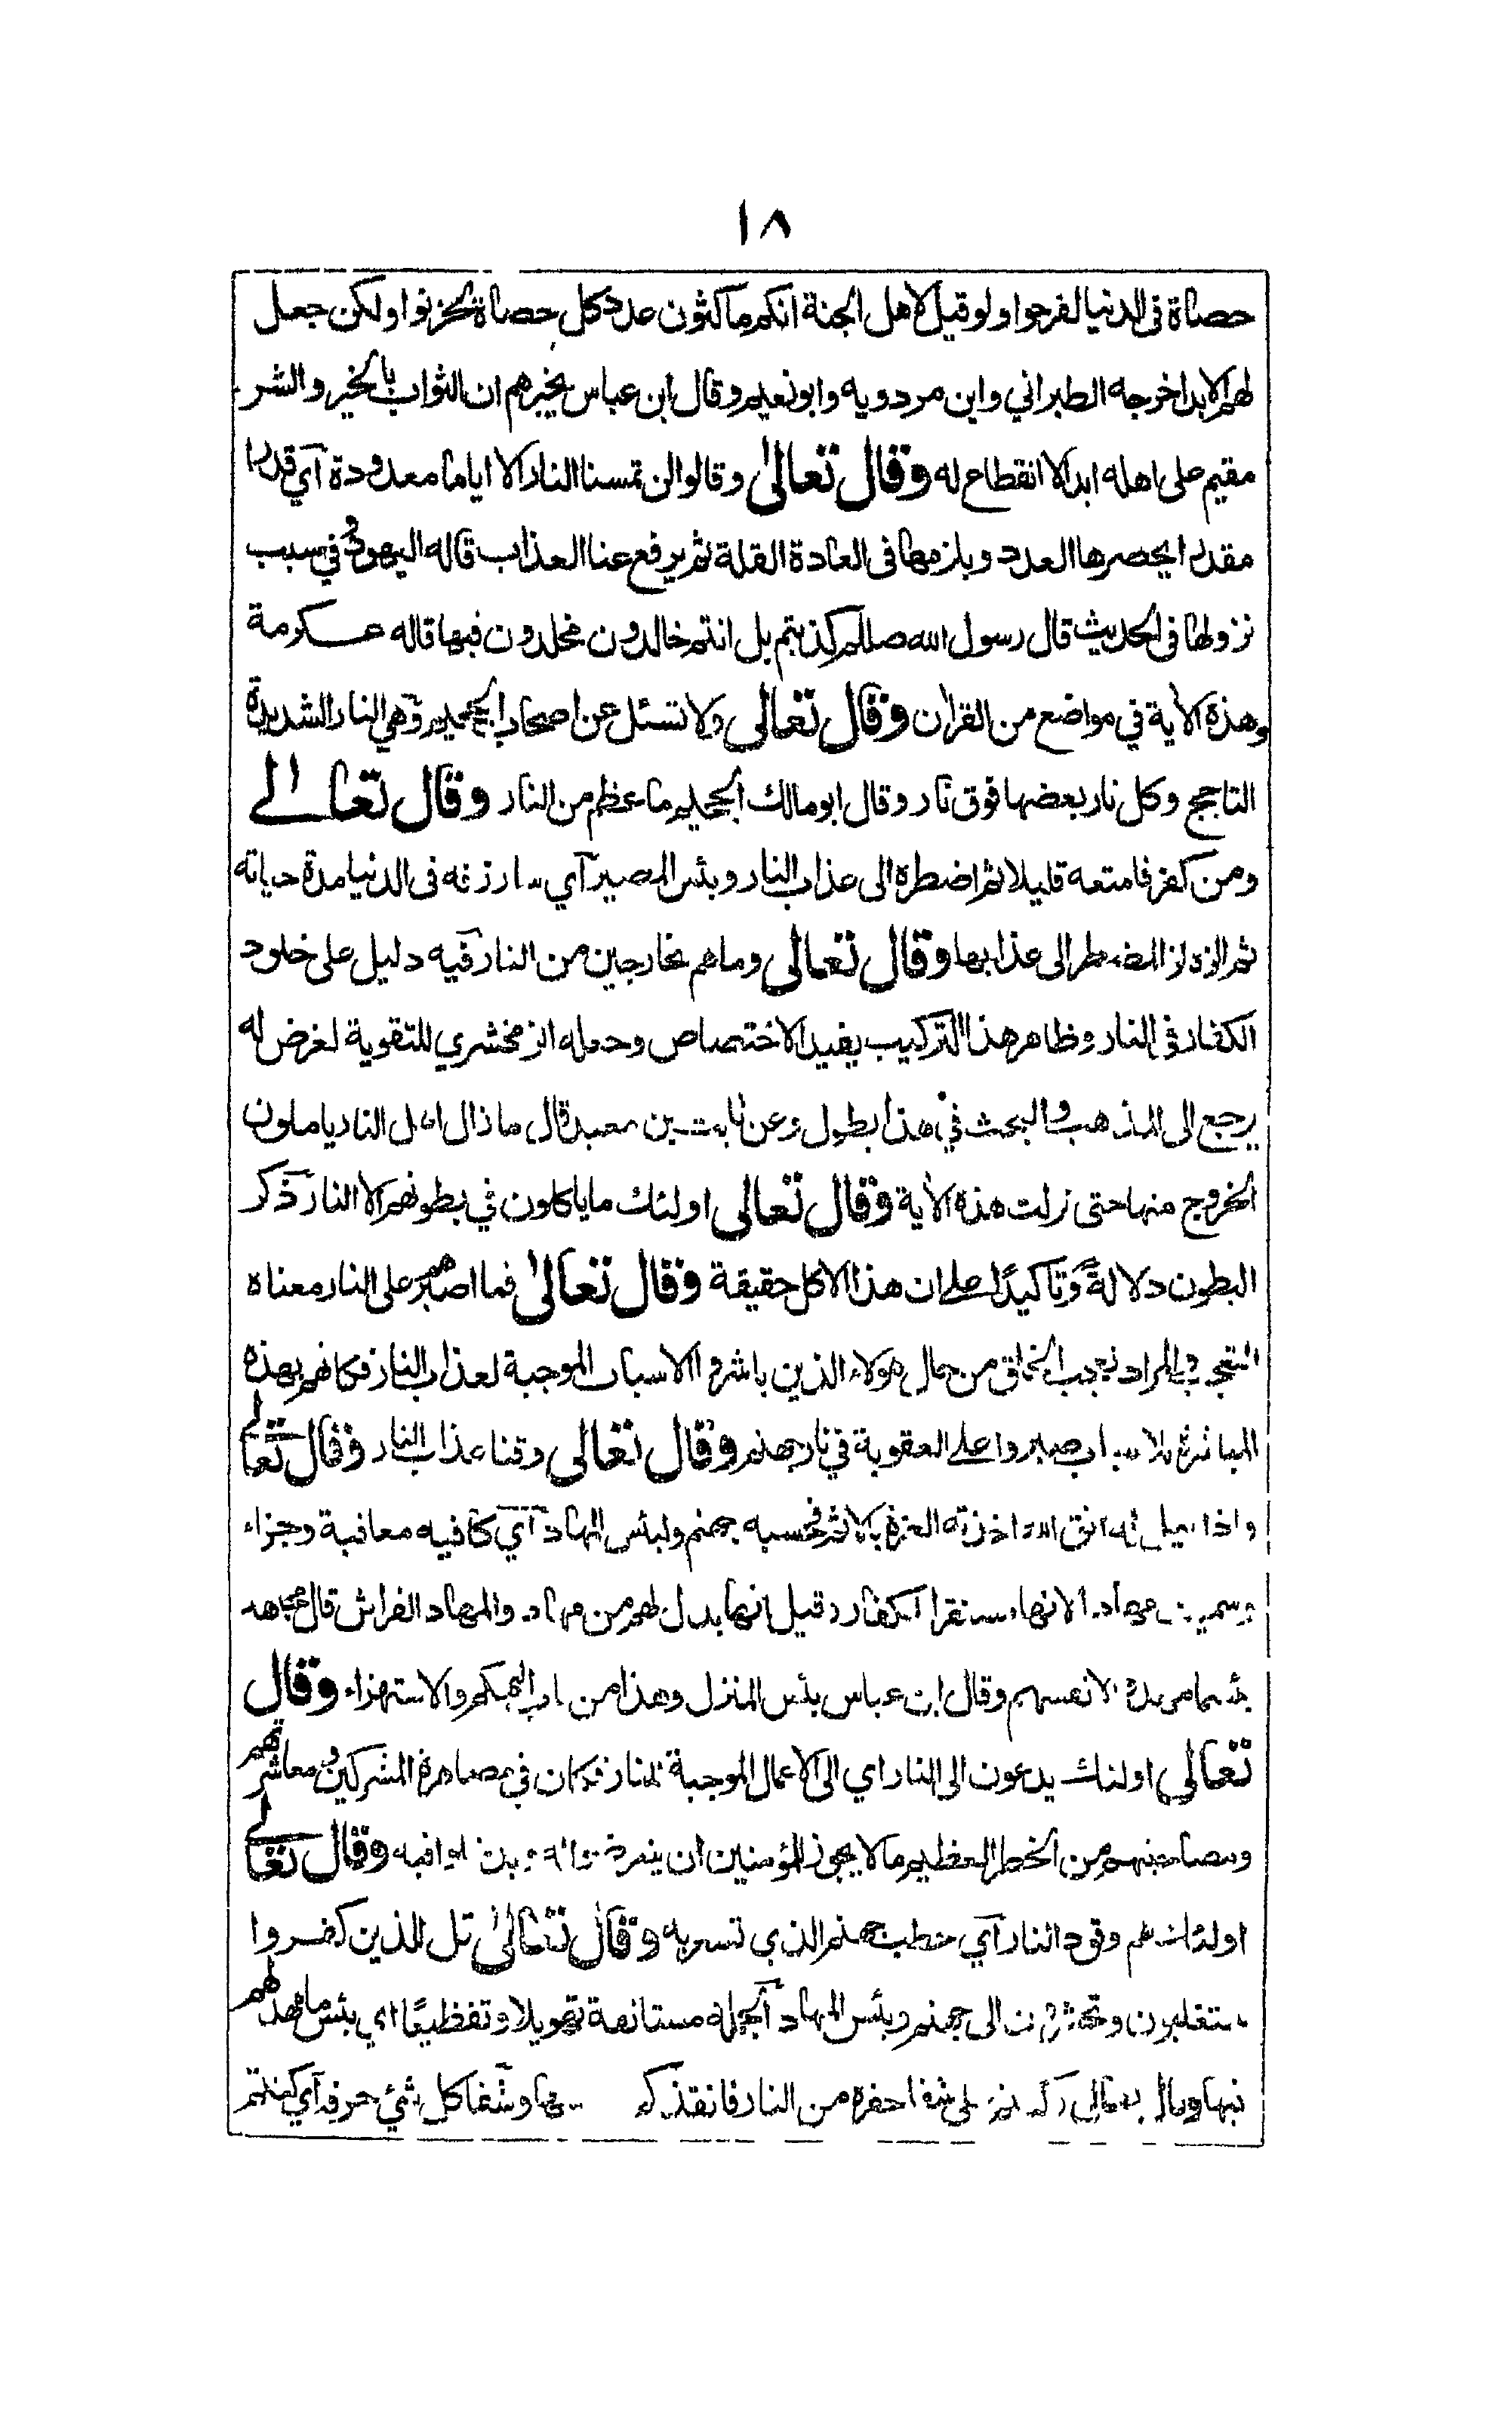 ١٨
حصاة في الدنيا لفرحوا ولو قيل لاهل الجنة انكم ماكثون عدد كل حصاة لحزنوا ولكن جعل
لهم الابد اخرجه الطبراني وابن مردويه وابو نعيم وقال ابن عباس يخبرهم ان الثواب بالخير والشر
مقيم على اهله ابدا لا انقطاع له وقال تعالى وقالوا لن تمسنا النار الا اياما معدودة آي قدرا
مقدرا يحصرها العدد ويلزمها في العادة القلة ثم يرفع عنا العذاب قاله اليهود وفي سبب
نزولها في الحديث قال رسول الله صللم كذبتم بل انتم خالدون مخلدون فيها قاله عكرمة
وهذه الاية في مواضع من القران وقال تعالى ولا تسئل عن اصحاب الجحيم وهي النار الشديدة
التاجج وكل نار بعضها فوق نار وقال ابو مالك الجحيم ما عظم من النار وقال تعالى
ومن كفر فامتعه قليلا ثم اضطره الى عذاب النار وبئس المصير آي سارزقه في الدنيا مدة حياته
ثم الزه لز المضطر الى عذابها وقال تعالى وما هم بخارجين من النار فيه دليل على خلود
الكفار في النار وظاهر هذا التركيب يفيد الاختصاص وحمله الزمخشري للتقوية لغرض له
يرجع الى المذهب والبحث في هذا يطول وعن ثابت بن معبد قال ما زال اهل النار ياملون
الخروج منها حتى نزلت هذه الاية وقال تعالى اولئك ما ياكلون في بطونهم الا النار ذكر
البطون دلالة وتاكيدا على ان هذا الاكل حقيقة وقال تعالى فما اصبرهم على النار معناه
التعجب والمراد تعجب الخلق من حال هولاء الذين باشروا الاسباب الموجبة لعذاب النار فكانهم بهذه
المباشرة للاسباب صبروا على العقوبة في نار جهنم وقال تعالى وقنا عذاب النار وقال تعالى
واذا قيل له اتق الله اخذته العزة بالاثم فحسبه جهنم ولبئس المهاد آي كافيه معاقبة وجزاء
وسميت مهادا لانها مستقر الكفار وقيل انها بدل لهم من مهاد والمهاد الفراش قال مجاهد
بئسما مهدوا لانفسهم وقال ابن عباس بئس المنزل وهذا من باب التهكم والاستهزاء وقال
تعالى اولئك يدعون الى النار اي الى الاعمال الموجبة للنار فكان في مصاهرة المشركين ومعاشرتهم
ومصاحبتهم من الخطر العظيم ما لا يجوز للمؤمنين ان يتعرضوا له وقال تعالى
اولئك هم وقود النار آي حطب جهنم الذي تسعر به وقال تعالى قل للذين كفروا
ستغلبون وتحشرون الى جهنم وبئس المهاد آلجملة مستانفة تهويلا وتفظيعا اي بئس ما مهد لهم
فيها وقال تعالى وكنتم على شفا حفرة من النار فانقذكم منها وشفا كل شئ حرفه آي كنتم